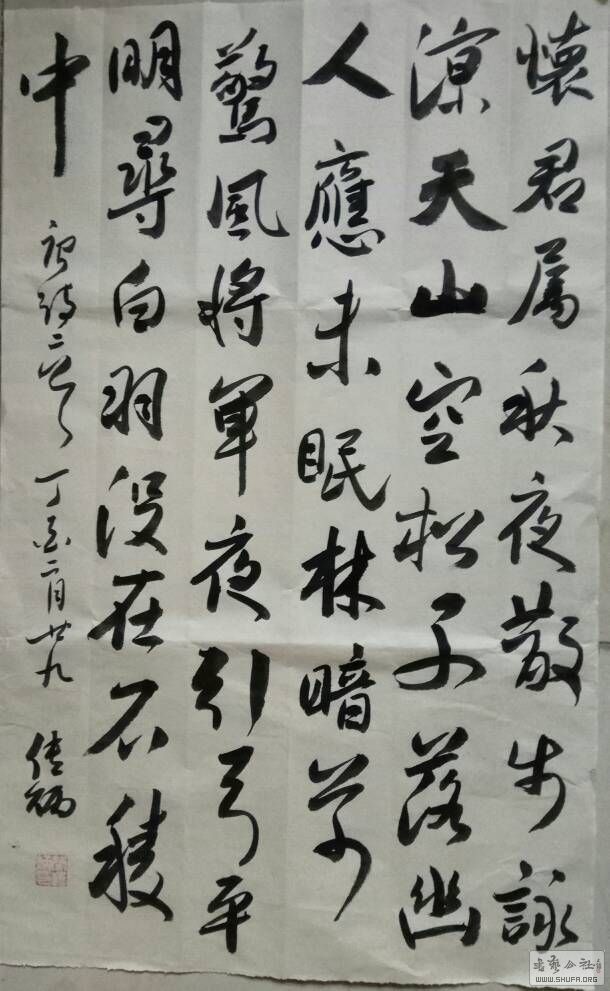 懷君属秋夜散步詠
涼天山空松子落幽
人應未眠林暗草
驚風将軍夜引弓平
明尋白羽没在石稜
中
唐詩二首 丁酉二月廿九
书艺公社
WWW.SHUFA.ORG